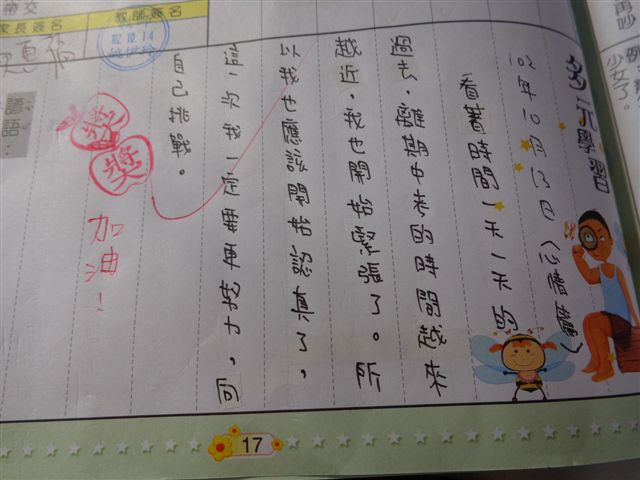 多元學習
102年10月13日(心情篇)
看著時間一天一天的
過去,離期中考的時間越來
越近,我也開始緊張了。所
以我也應該開始認真了。
這一次我一定要更努力,向
自己挑戰。
獎
獎
加油!
帶交
家長簽名
教師簽名
102.10.14
再吵
少女了。
17